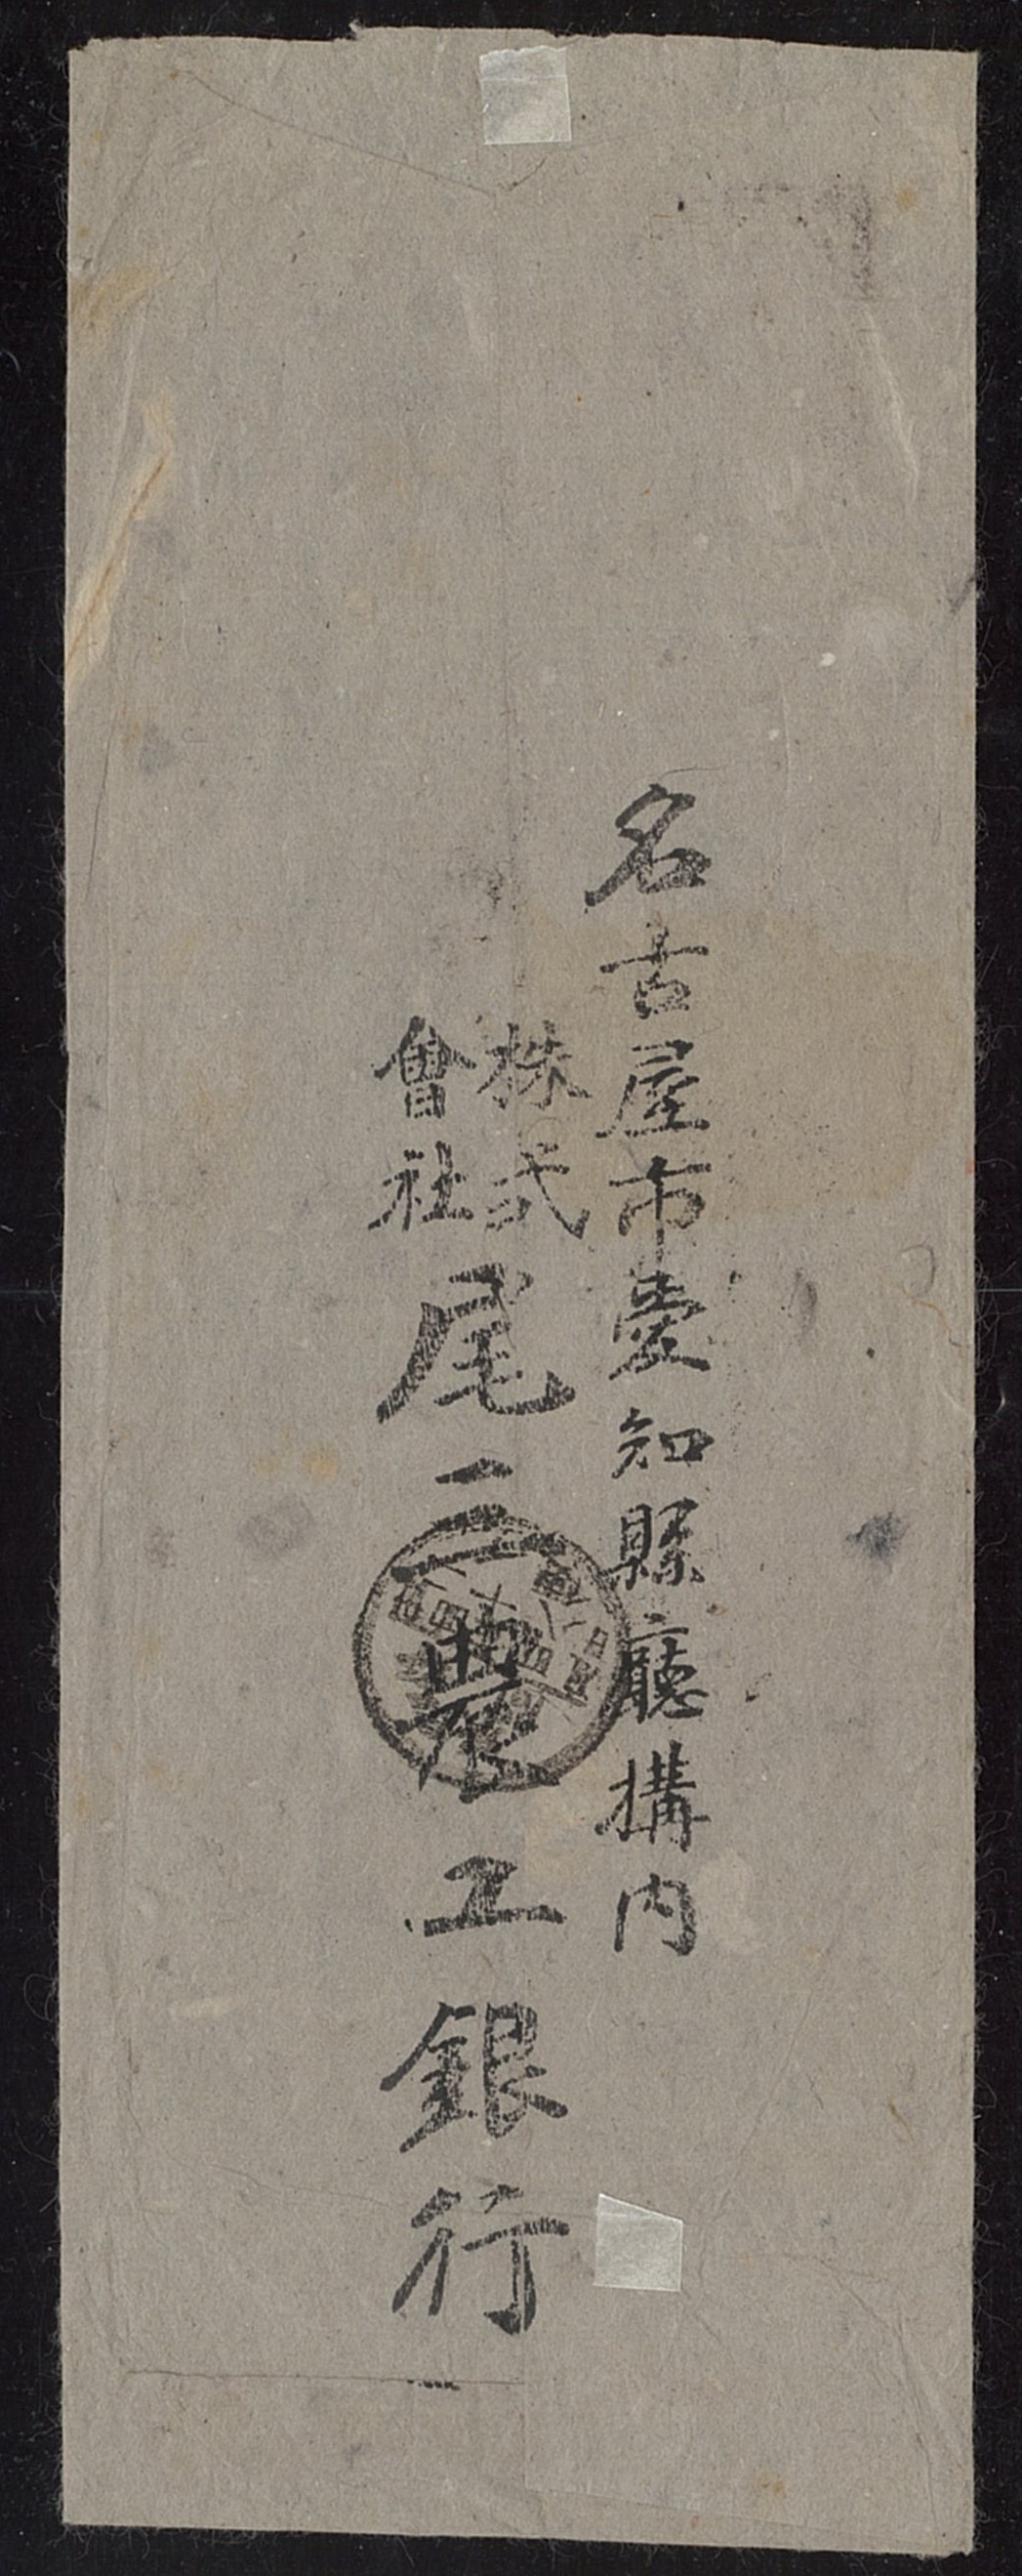 名古屋市愛知縣廳構内
株式
會社
尾三農工銀行